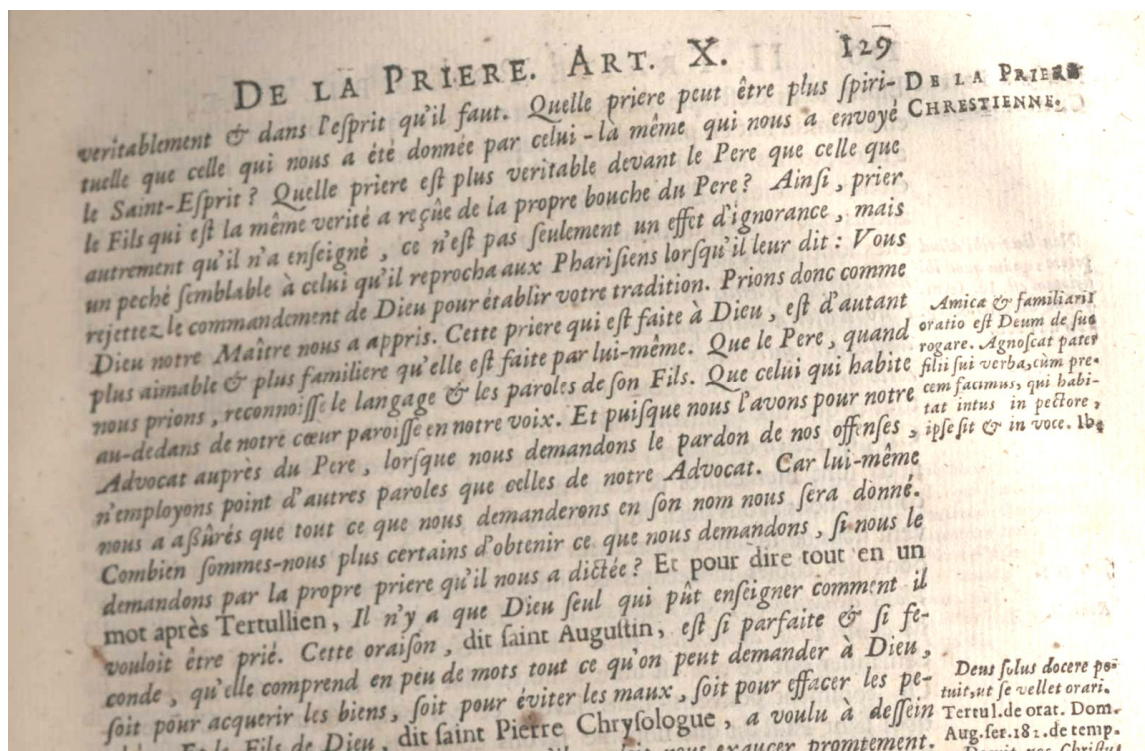 DE LA PRIERE. ART. X. 129
veritablement & dans l'eſprit qu'il faut. Quelle priere peut être plus ſpiri-
tuelle que celle qui nous a été donnée par celui-là même qui nous a envoyé
le Saint-Eſprit? Quelle priere eſt plus veritable devant le Pere que celle que
le Fils qui eſt la même verité a reçûe de la propre bouche du Pere? Ainſi, prier
autrement qu'il n'a enſeigné, ce n'eſt pas ſeulement un effet d'ignorance, mais
un peché ſemblable à celui qu'il reprocha aux Phariſiens lorſqu'il leur dit: Vous
rejettez le commandement de Dieu pour établir votre tradition. Prions donc comme
Dieu notre Maître nous a appris. Cette priere qui eſt faite à Dieu, eſt d'autant
plus aimable & plus familiere qu'elle eſt faite par lui-même. Que le Pere, quand
nous prions, reconnoiſſe le langage & les paroles de ſon Fils. Que celui qui habite
au-dedans de notre cœur paroiſſe en notre voix. Et puiſque nous l'avons pour notre
Advocat auprès du Pere, lorſque nous demandons le pardon de nos offenſes,
n'employons point d'autres paroles que celles de notre Advocat. Car lui-même
nous a aßûrés que tout ce que nous demanderons en ſon nom nous ſera donné.
Combien ſommes-nous plus certains d'obtenir ce que nous demandons, ſi nous le
demandons par la propre priere qu'il nous a dictée? Et pour dire tout en un
mot après Tertullien, Il n'y a que Dieu ſeul qui pût enſeigner comment il
vouloit être prié. Cette oraiſon, dit ſaint Auguſtin, eſt ſi parfaite & ſi fe-
conde, qu'elle comprend en peu de mots tout ce qu'on peut demander à Dieu,
ſoit pour acquerir les biens, ſoit pour éviter les maux, ſoit pour effacer les pe-
Et le Fils de Dieu, dit ſaint Pierre Chryſologue, a voulu à deſſein
nous exaucer promtement.
DE LA PRIERE
CHRESTIENNE.
Amica & familiaris
oratio eſt Deum de ſuo
rogare. Agnoſcat pater
filii ſui verba, cùm pre-
cem facimus, qui habi-
tat intus in pectore,
ipſe ſit & in voce. Ib.
Deus ſolus docere po-
tuit, ut ſe vellet orari.
Tertul. de orat. Dom.
Aug. ſer. 182. de temp.
Chriſtus